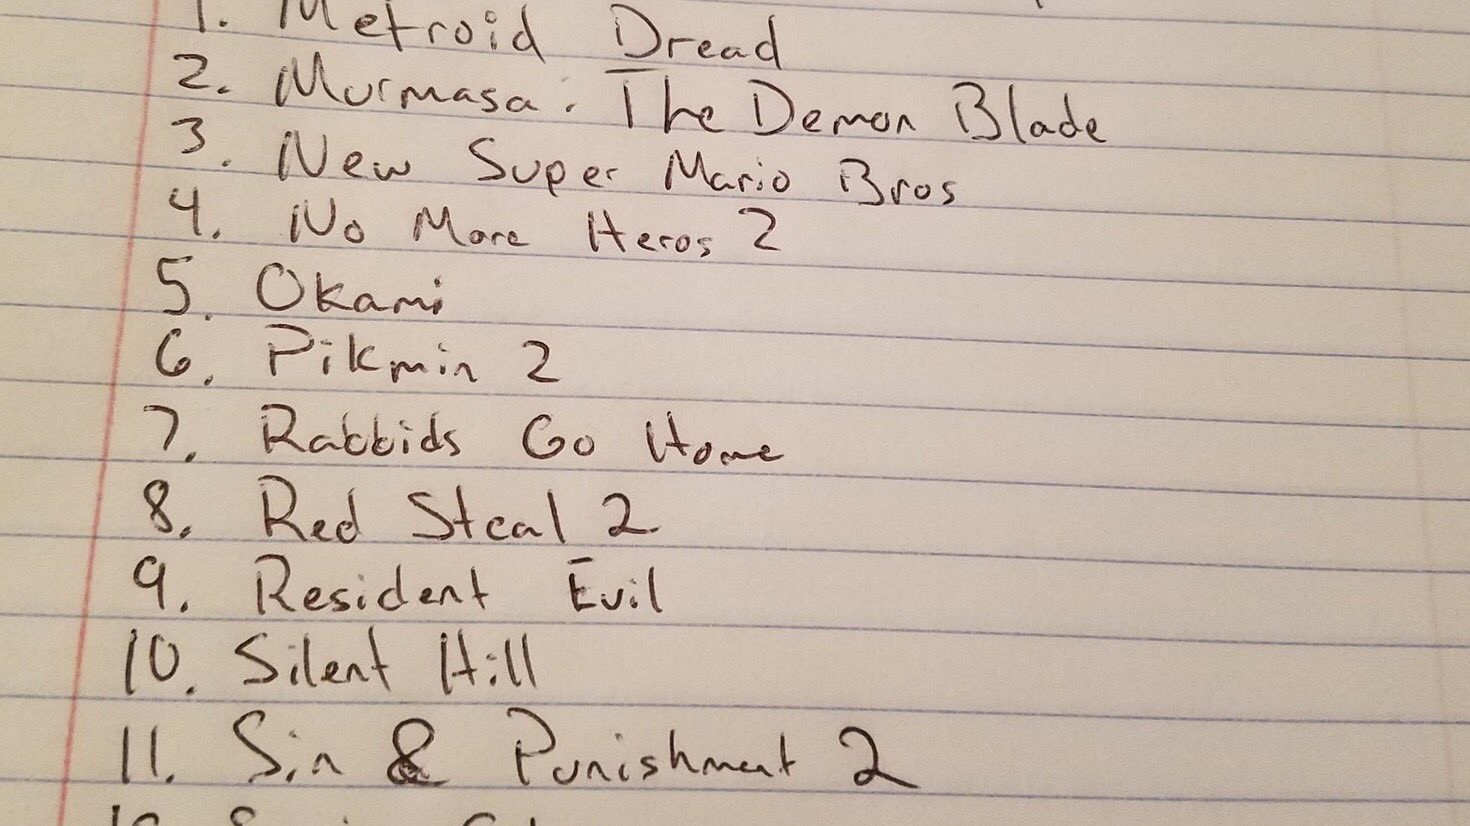 1. Metroid Dread
2. Murmasa: The Demon Blade
3. New Super Mario Bros
4. No More Heros 2
5. Okami
6. Pikmin 2
7. Rabbids Go Home
8. Red Steal 2
9. Resident Evil
10. Silent Hill
11. Sin & Punishment 2